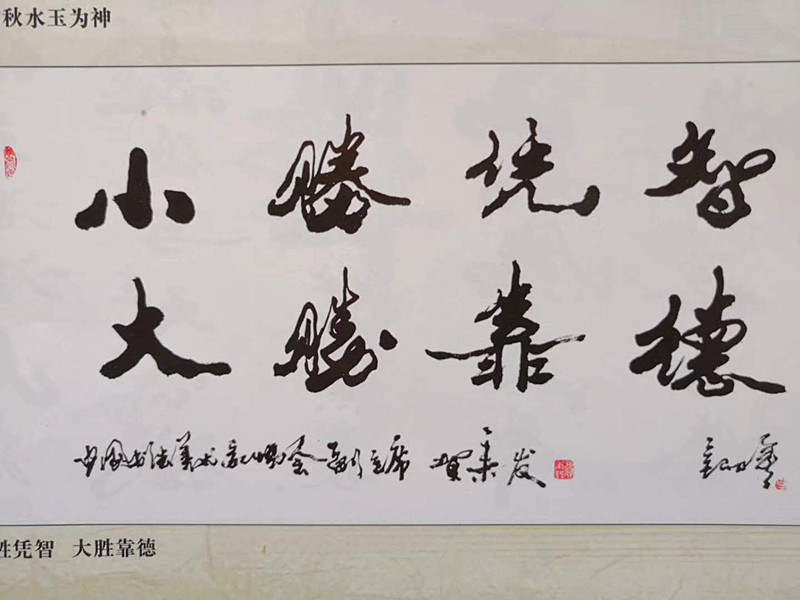 秋水玉为神
小勝凭智
大勝靠德
中国书法美术家协会副主席
胜凭智 大胜靠德